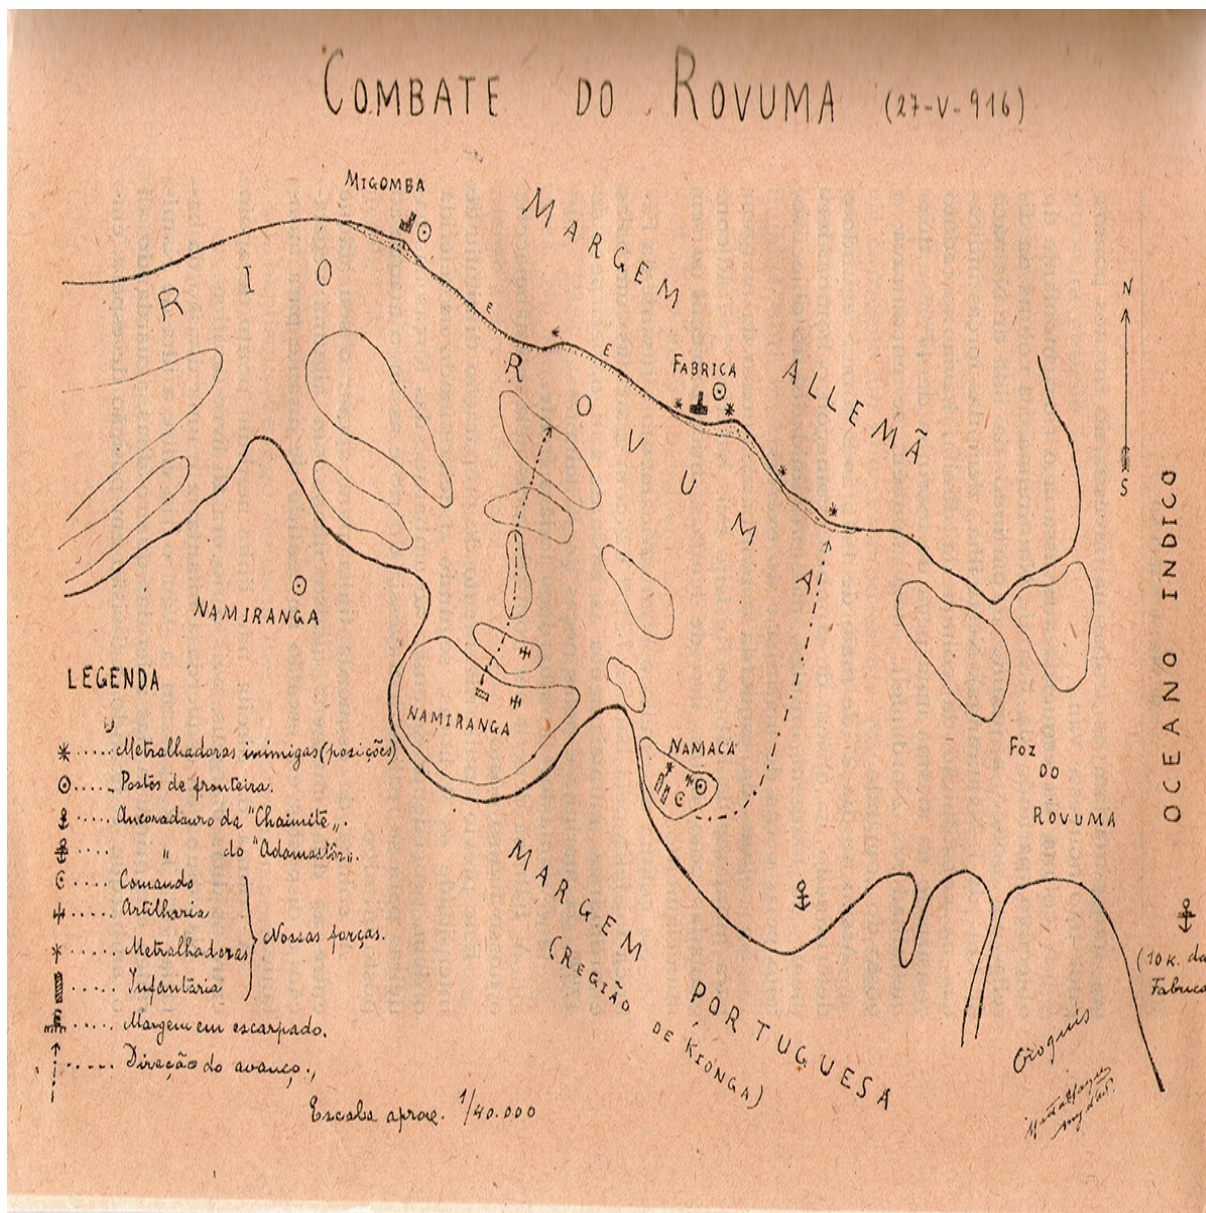 COMBATE DO ROVUMA (27-V-916)
MIGOMBA
MARGEM ALLEMÃ
RIO ROVUMA
E
E
FABRICA
N
S
OCEANO INDICO
NAMIRANGA
NAMIRANGA
NAMACA
FOZ
DO
ROVUMA
MARGEM PORTUGUESA
(REGIÃO DE KIONGA)
(10 K. da
Fabrica
LEGENDA
Metralhadoras inimigas (posições)
Postos de fronteira.
Ancoradouro da "Chaimite".
" do "Adamastôr".
Comando
Artilharia
Metralhadoras
Infantaria
Nossas forças.
E
Margem em escarpado.
Direcção do avanço.,
Escala aprox. 1/40.000
Croquis